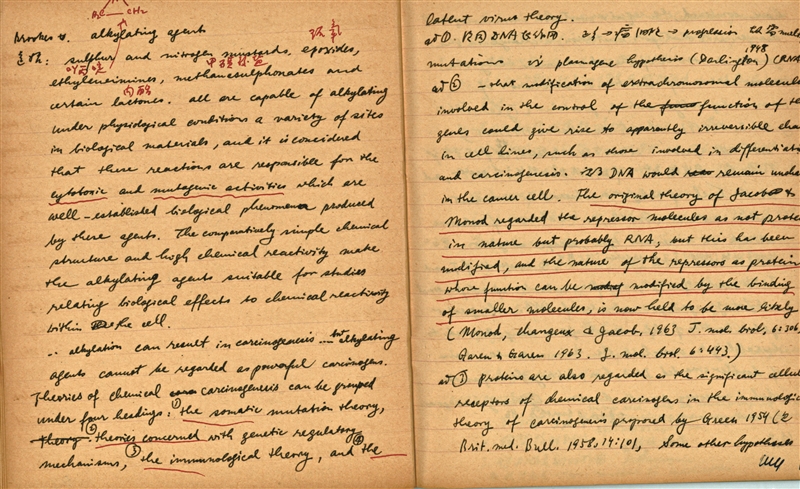 H₂C CH₂
Brookes v. alkylating agents
sulphur and nitrogen mustards, epoxides,
ethyleneimines, methanesulphonates and
内酯
certain lactones. all are capable of alkylating
under physiological conditions a variety of sites
in biological materials, and it is considered
that these reactions are responsible for the
cytotoxic and mutagenic activities which are
well-established biological phenomena produced
by these agents. The comparatively simple chemical
structure and high chemical reactivity make
the alkylating agents suitable for studies
relating biological effects to chemical reactivity
within the cell.
∴ alkylation can result in carcinogenesis ... but alkylating
agents cannot be regarded as powerful carcinogens.
Theories of chemical carcinogenesis can be grouped
under four headings: ① the somatic mutation theory,
② theories concerned with genetic regulatory
mechanisms, ③ the immunological theory, and ④ the
latent virus theory.
ad ①. DNA
mutations plasmagene hypothesis (Darlington) 1948 (RNA
ad ② - that modification of extrachromosomal molecu
involved in the control of the function of the
genes could give rise to apparently irreversible cha
in cell lines, such as those involved in differentiati
and carcinogenesis. DNA would remain uncha
in the cancer cell. The original theory of Jacob &
Monod regarded the repressor molecules as not prote
in nature but probably RNA, but this has been
modified, and the nature of the repressors as protein
whose function can be modified by the binding
of smaller molecules, is now held to be more likely
(Monod, Changeux & Jacob, 1963 J. mol. biol, 6:306,
Garen & Garen 1963. J. mol. biol. 6:443.)
ad ③ proteins are also regarded as the significant cellul
receptors of chemical carcinogens in the immunologic
theory of carcinogenesis proposed by Green 1954 (
Brit. med. Bull. 1958. 14:101, Some other hypotheses